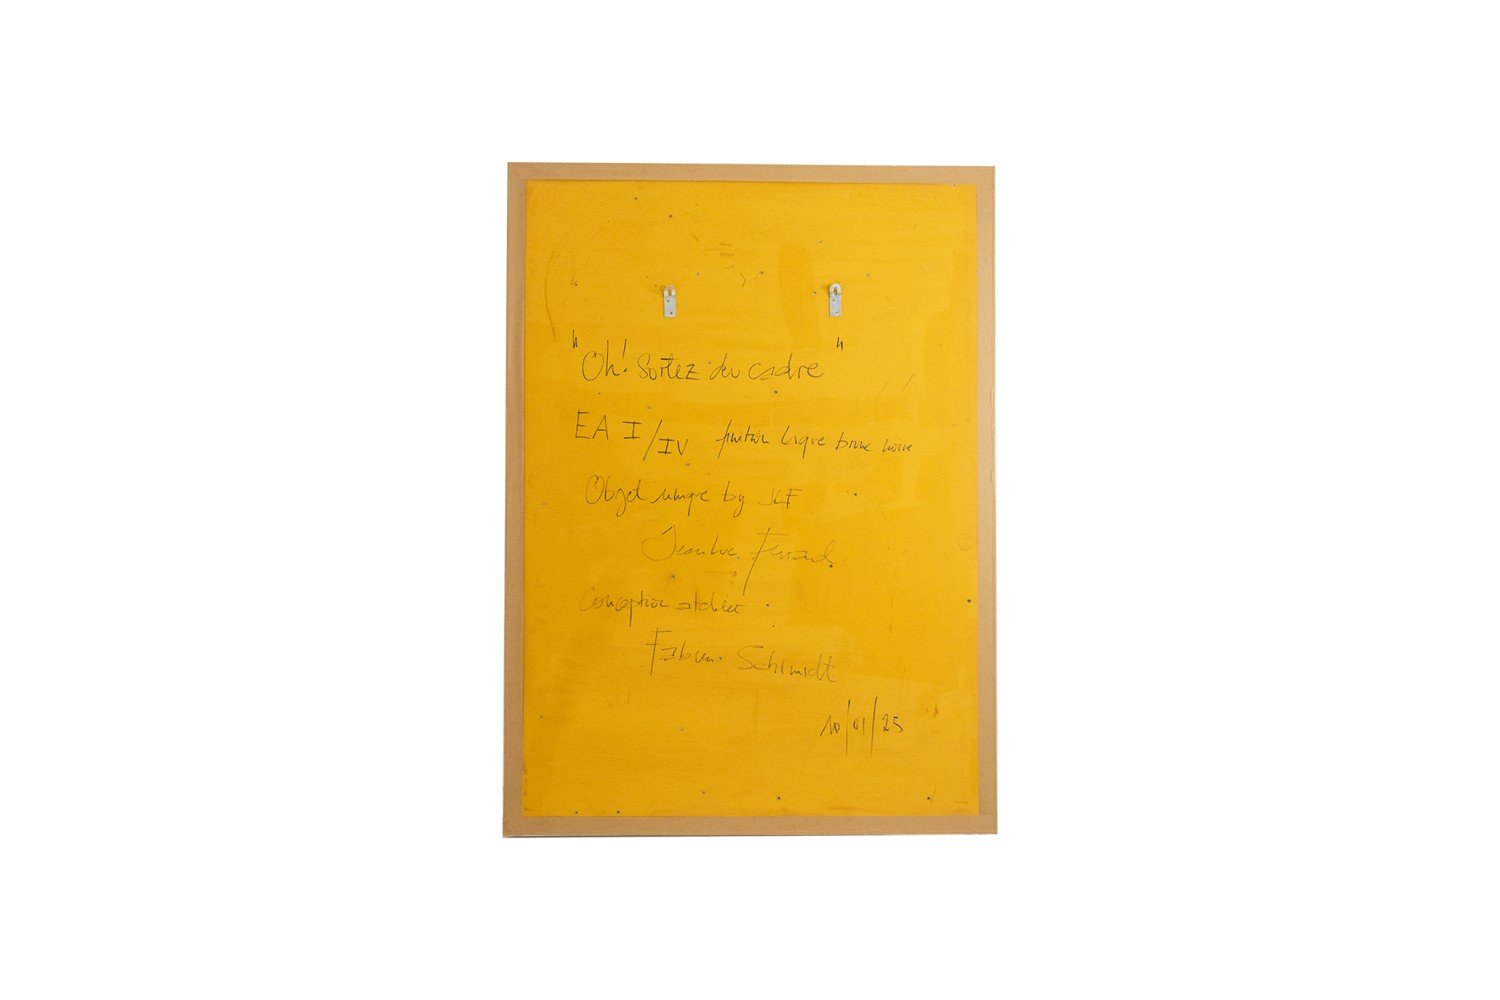 "Oh! Sortez du cadre"
EA I/IV finition laque
Objet unique by JLF
Jean Luc Ferrand
Conception atelier
Fabien Schmidt
10/01/25